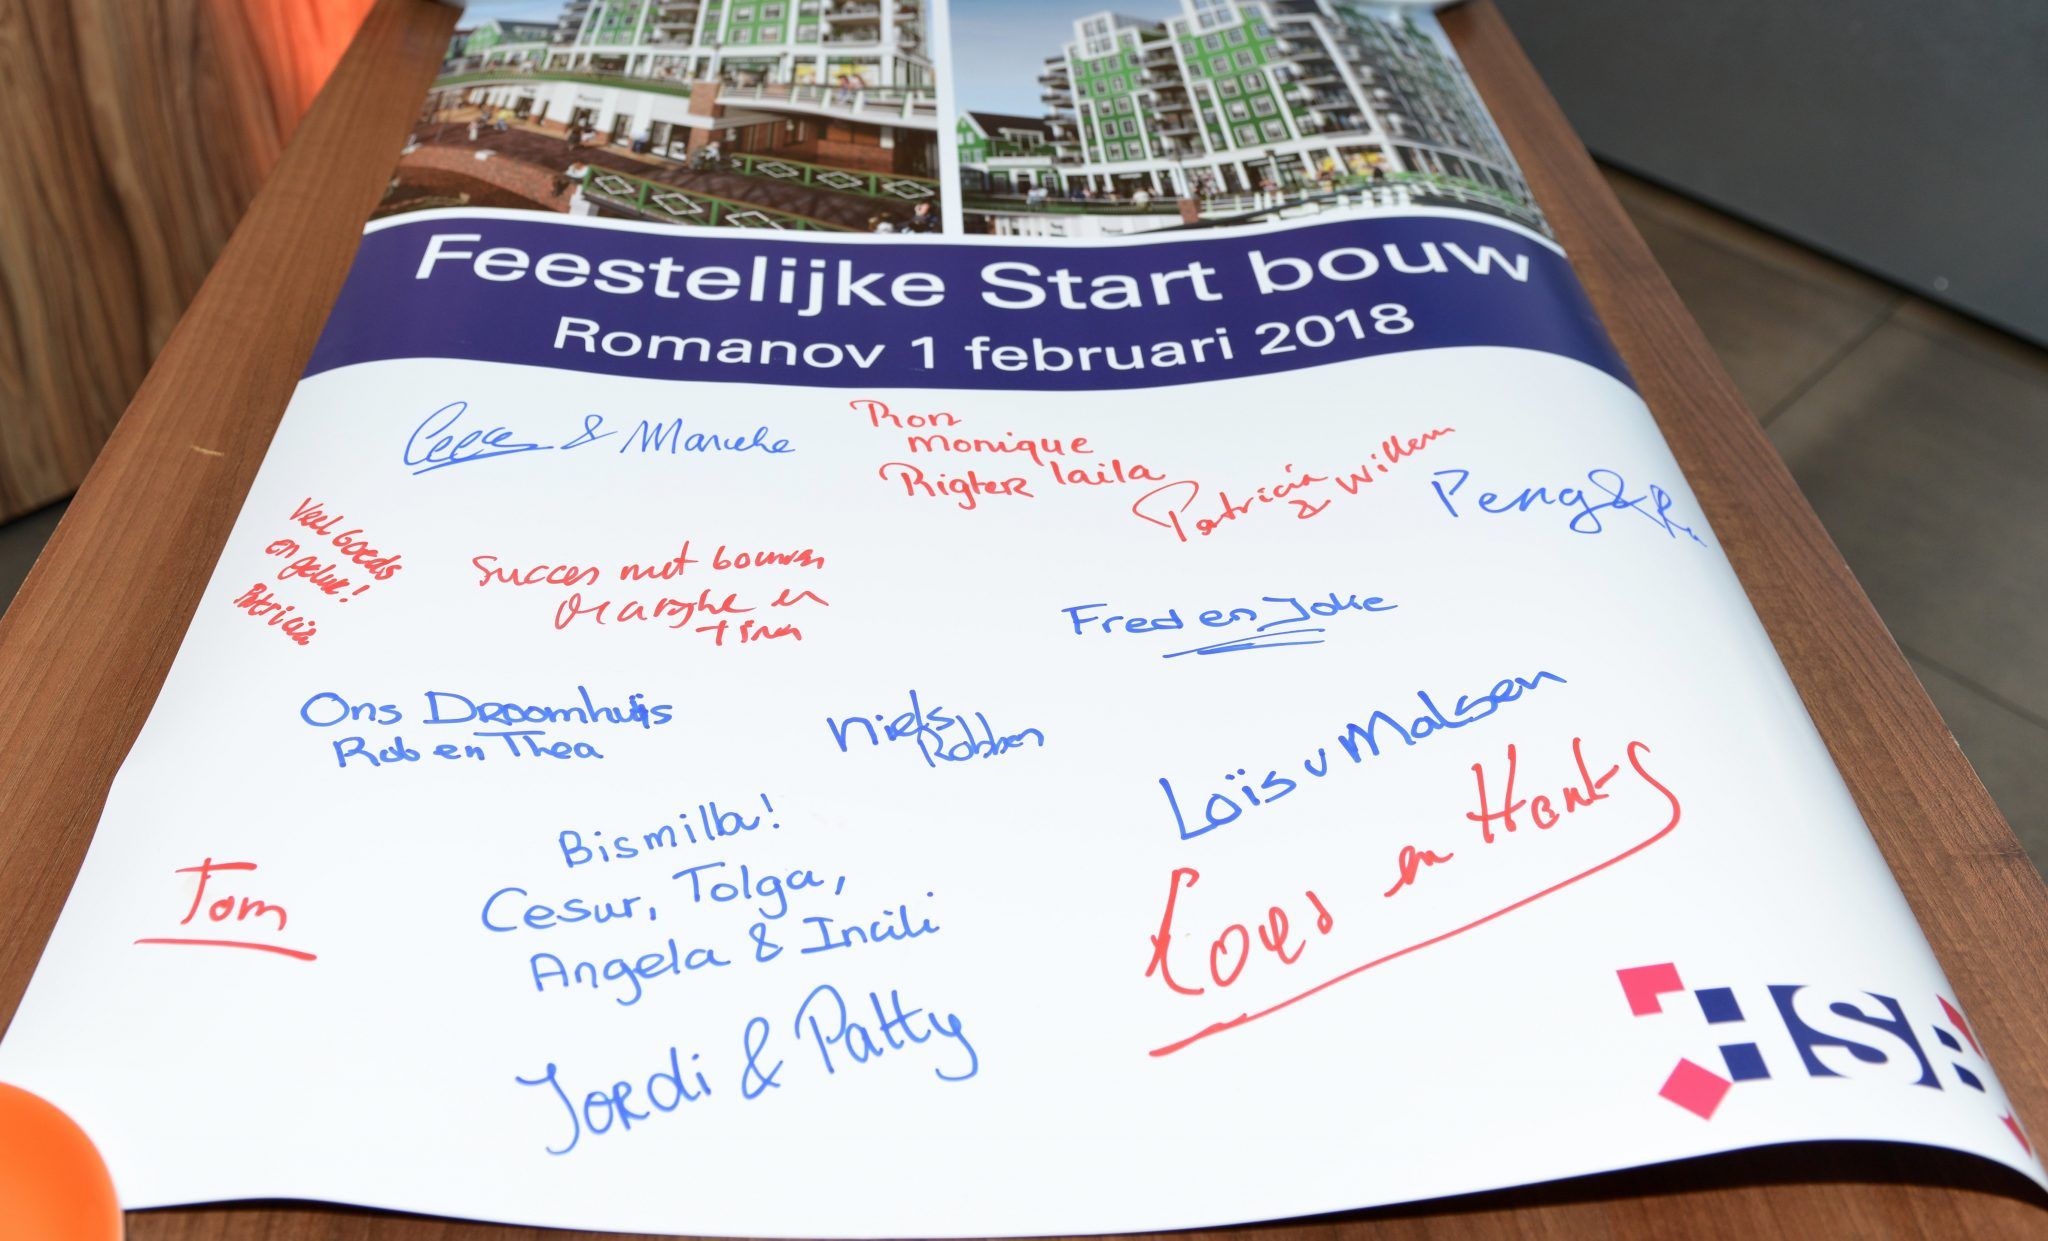 Feestelijke Start bouw
Romanov 1 februari 2018
Cees & Marieke
Ron
monique
Rigter laila
Patricia
& Willem
Peng &
Veel Goeds
en geluk!
Patricia
Succes met bouwen
en
Fred en Joke
Ons Droomhuis
Rob en Thea
Niels
Robben
Loïs v Malsen
Bismilla!
Cesur, Tolga,
Angela & Incili
Tom
Loes en
Jordi & Patty
HSB